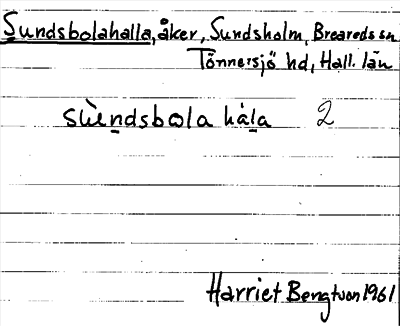 Sundsbolahalla, åker, Sundsholm, Breareds sn
Tönnersjö hd, Hall. län
sùndsbola hála 2
Harriet Bengtson 1961